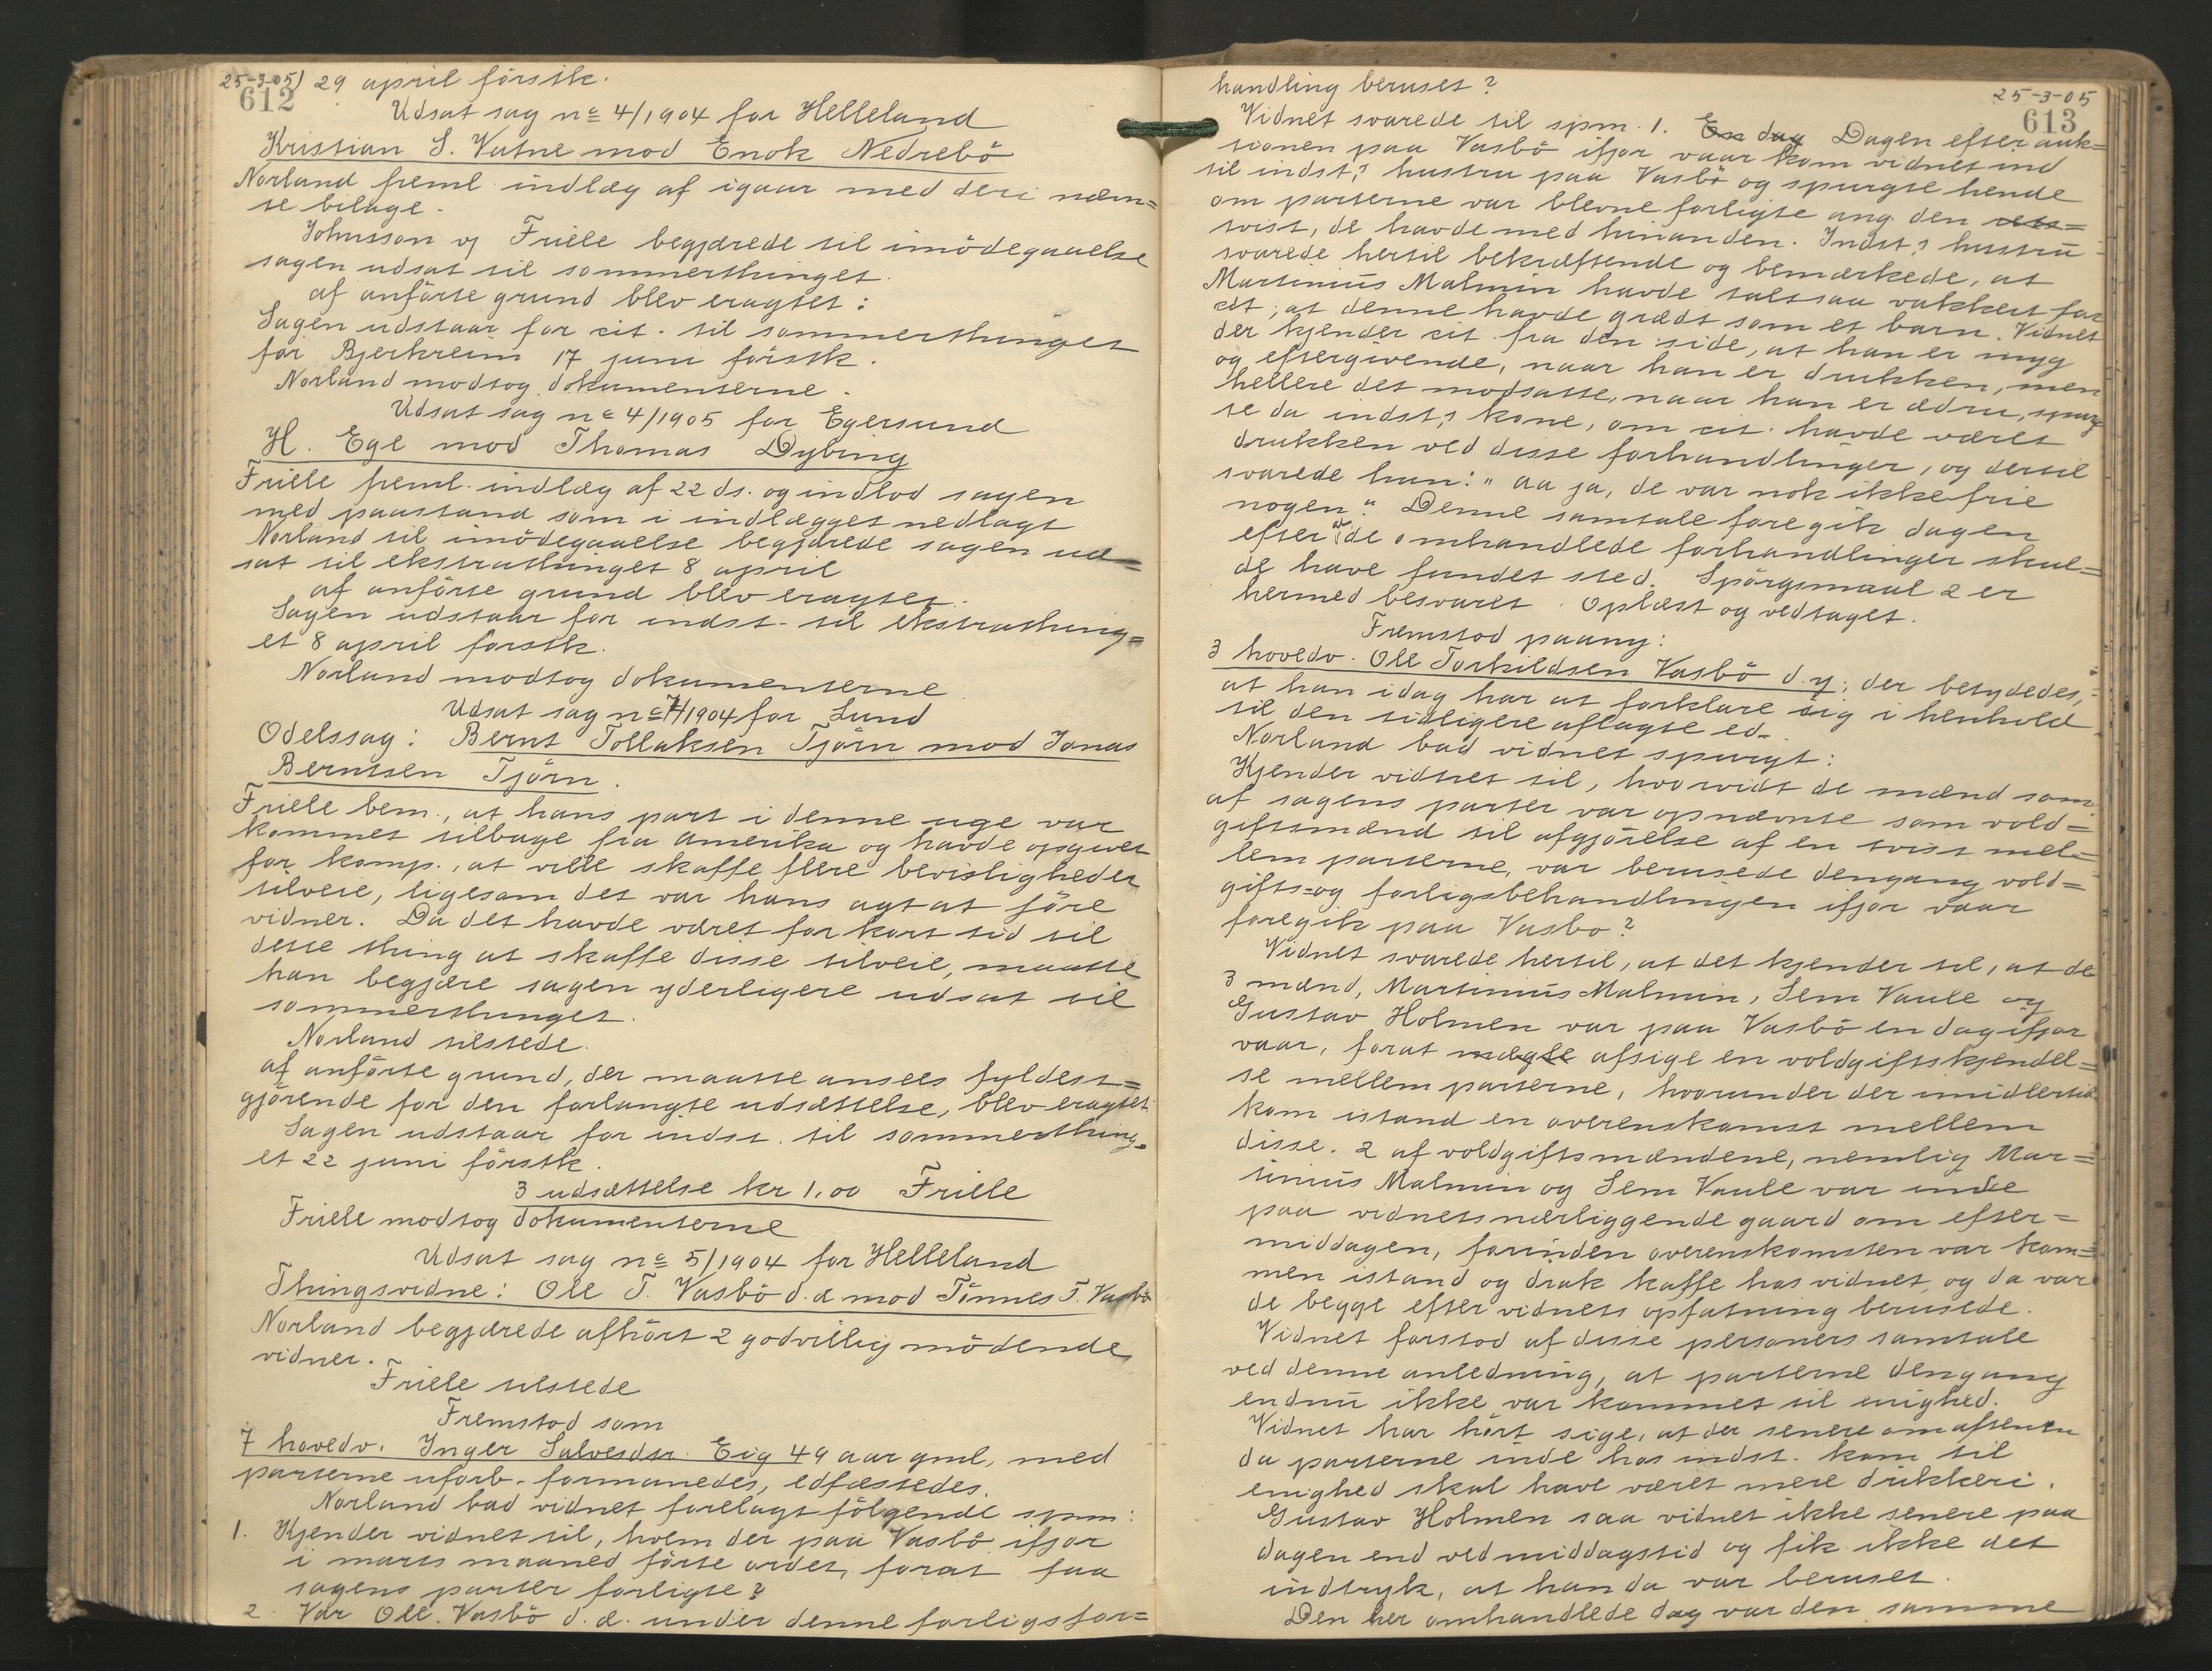 25-3-05) 29 april förstk.
612
Udsat sag no 4/1904 for Helleland
Kristian S. Vatne mod Enok Nedrebö
Norland freml. indlæg af igaar med deri nævn=
te bilage.
Johnsson v/ Friele begjærede til imödegaaelse
sagen udsat til sommerthinget.
af anförte grund blev eragtet:
Sagen udstaar for cit. til sommerthinget
for Bjerkreim 17 juni förstk.
Norland modtog dokumenterne.
Udsat sag no 4/1905 for Egersund
H. Ege mod Thomas Dybing
Friele freml. indlæg af 22 ds. og indlod sagen
med paastand som i indlægget nedlagt
Norland til imödegaaelse begjærede sagen ud=
sat til ekstrathinget 8 april
af anförte grund blev eragtet.
Sagen udstaar for indst. til ekstrathing=
et 8 april forstk.
Norland modtog dokumenterne
Udsat sag no 7/1904 for Lund
Odelssag: Bernt Tollaksen Tjörn mod Jonas
Berntsen Tjörn.
Friele bem., at hans part i denne uge var
kommet tilbage fra Amerika og havde opgivet
for komp., at ville skaffe flere bevisligheder
tilveie, ligesom det var hans agt at före
vidner. Da det havde været for kort tid til
dette thing at skaffe disse tilveie, maatte
han begjære sagen yderligere udsat til
sommerthinget.
Norland tilstede.
af anförte grund, der maatte ansees fyldest=
gjörende for den forlangte udsættelse, blev eragtet
Sagen udstaar for indst. til sommerthing=
et 22 juni förstk.
3 udsættelse kr 1,00 Friele
Friele modtog dokumenterne
Udsat sag no 5/1904 for Helleland
Thingsvidne: Ole T. Vasbö d.æ. mod Tönnes T. Vasbö
Norland begjærede afhört 2 godvillig mödende
vidner.
Friele tilstede
Fremstod som
7 hovedv. Inger Salvesdtr. Eig 49 aar gml, med
parterne uforb. formanedes, edfæstedes.
Norland bad vidnet forelagt fölgende spm:
1. Kjender vidnet til, hvem der paa Vasbö ifjor
i marts maaned förte ordet, forat faa
sagens parter forligte?
2. Var Ole Vasbö d.æ. under denne forligsfor=
25-3-05
613
handling beruset?
Vidnet svarede til spm. 1. En dag Dagen efter auk=
tionen paa Vasbö ifjor vaar kom vidnet ind
til indst.s hustru paa Vasbö og spurgte hende
om parterne var blevne forligte ang. den
tvist, de havde med hinanden. Indst.s hustru
svarede hertil bekræftende og bemærkede, at
Martinius Malmin havde talt saa vakkert for
cit, at denne havde grædt som et barn. Vidnet
der kjender cit fra den side, at han er myg
og eftergivende, naar han er drukken, men
hellere det modsatte, naar han er ædru, spurg
te da indst.s kone, om cit. havde været
drukken ved disse forhandlinger, og dertil
svarede hun: "aa ja, de var nok ikke frie
nogen". Denne samtale foregik dagen
efter at de omhandlede forhandlinger skul=
de have fundet sted. Spörgsmaal 2 er
hermed besvaret. Oplæst og vedtaget.
Fremstod paany:
3 hovedv. Ole Torkildsen Vasbö d.y., der betydedes,
at han idag har at forklare sig i henhold
til den tidligere aflagte ed.
Norland bad vidnet spurgt:
Kjender vidnet til, hvorvidt de mænd som
af sagens parter var opnævnte som vold=
giftsmænd til afgjörelse af en tvist mel=
lem parterne, var berusede dengang vold=
gifts= og forligsbehandlingen ifjor vaar
foregik paa Vasbö?
Vidnet svarede hertil, at det kjender til, at de
3 mænd, Martinius Malmin, Sem Vaule og
Gustav Holmen var paa Vasbö en dag ifjor
vaar, forat mægle afsige en voldgiftskjendel=
se mellem parterne, hvorunder der imidlertid
kom istand en overenskomst mellem
disse. 2 af voldgiftsmændene, nemlig Mar=
tinius Malmin og Sem Vaule var inde
paa vidnets nærliggende gaard om efter=
middagen, forinden overenskomsten var kom=
men istand og drak kaffe hos vidnet, og da var
de begge efter vidnets opfatning berusede.
Vidnet forstod af disse personers samtale
ved denne anledning, at parterne dengang
endnu ikke var kommet til enighed.
Vidnet har hört sige, at der senere om aftenen
da parterne inde hos indst. kom til
enighed skal have været mere drikkeri.
Gustav Holmen saa vidnet ikke senere paa
dagen end ved middagstid og fik ikke det
indtryk, at han da var beruset.
Den her omhandlede dag var den samme